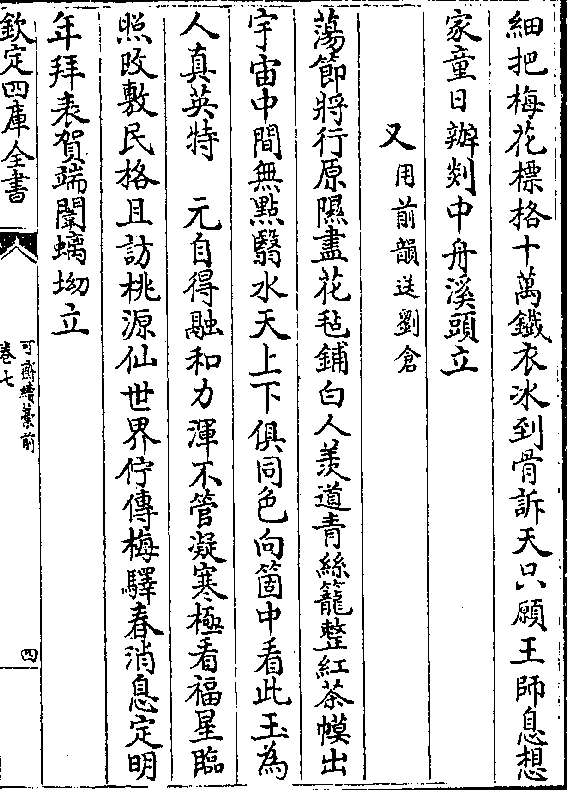 細把梅花標格十萬鐵衣冰到骨訴天只願王師息想
家童日辦剡中舟溪頭立
又用前韻送劉倉
蕩節將行原隰盡花毡鋪白人羨道青絲籠整紅茶幙出
宇宙中間無點翳水天上下俱同色向箇中看此玉為
人真英特　元自得融和力渾不管凝寒極看福星臨
照畋敷民格且訪桃源仙世界佇傳梅驛春消息定明
年拜表賀端闈螭坳立
欽定四庫全書
可齋續藁前
卷七
四